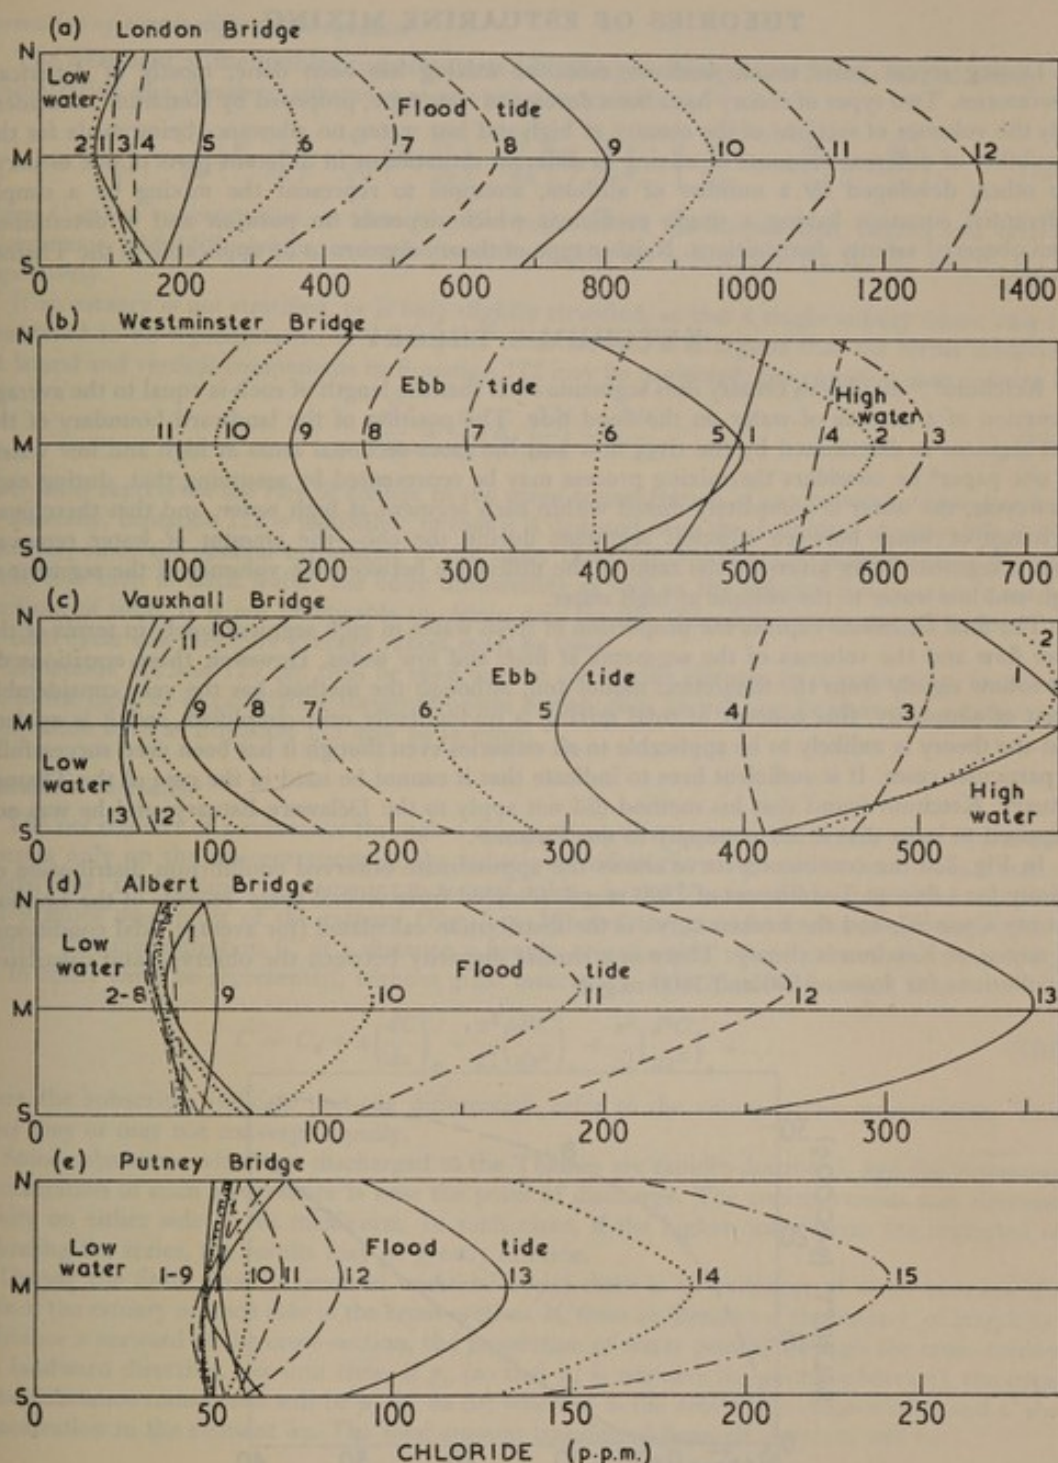 THEORIES OF ESTUARINE MIXING
(a) London Bridge
N
Low water
Flood tide
M
2 1 3 4 5 6 7 8 9 10 11 12
S
0 200 400 600 800 1000 1200 1400
(b) Westminster Bridge
N
Ebb tide
High water
M
11 10 9 8 7 6 5 1 4 2 3
S
0 100 200 300 400 500 600 700
(c) Vauxhall Bridge
N
11 10
2
1
Ebb tide
M
9 8 7 6 5 4 3
Low water
13 12
High water
S
0 100 200 300 400 500
(d) Albert Bridge
N
1
Low water
Flood tide
2-8 9 10 11 12 13
M
S
0 100 200 300
(e) Putney Bridge
N
Low water
Flood tide
1-9 10 11 12 13 14 15
M
S
0 50 100 150 200 250
CHLORIDE (p.p.m.)